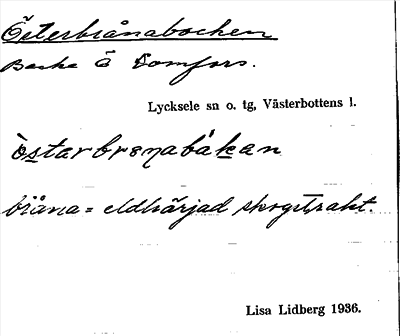 Österbrånabacken
Backe å Tomfors.
Lycksele sn o. tg, Västerbottens l.
östarbrånabákan
bråna = eldhärjad skogstrakt.
Lisa Lidberg 1936.